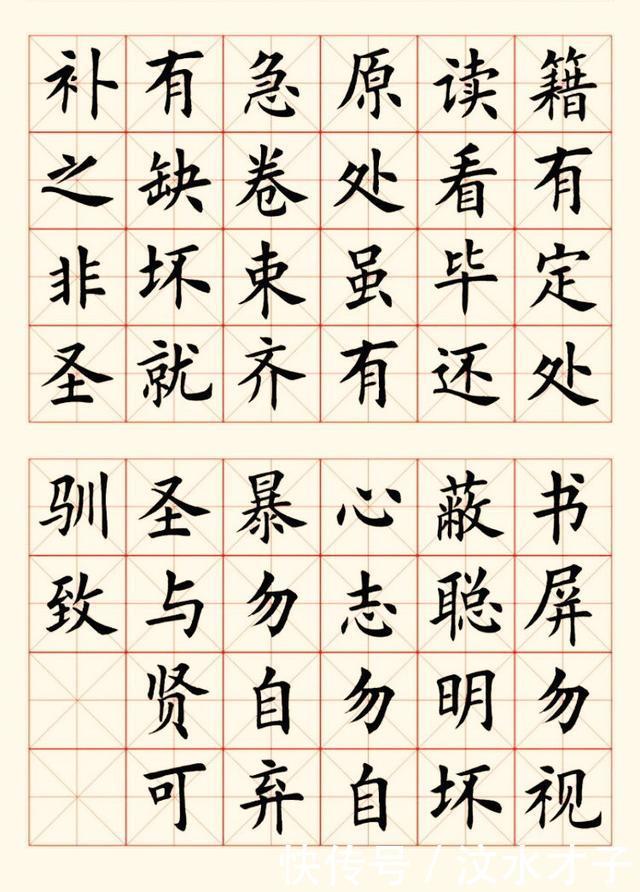 籍有定处
读看毕还
原处虽有
急卷束齐
有缺坏就
补之非圣
书屏勿视
蔽聪明坏
心志勿自
暴勿自弃
圣与贤可
驯致
快传号 / 汶水才子